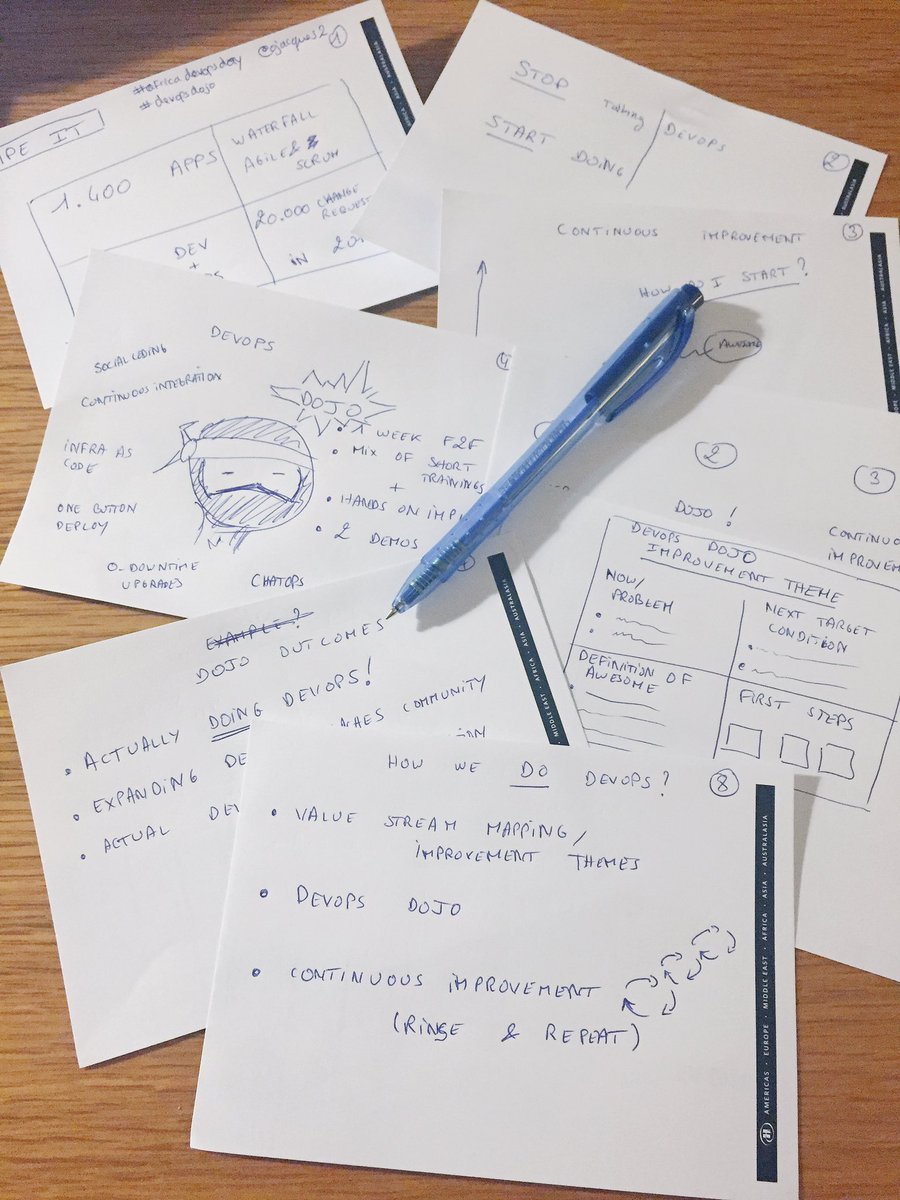 #africadevopsday @ojacques2 1
#devopsdojo
PE IT
1.400 APPS
WATERFALL
AGILE & SCRUM
DEV
+
20.000 CHANGE
REQUEST
IN 20
STOP Talking
START DOING
DEVOPS
2
AUSTRALASIA
CONTINUOUS IMPROVEMENT 3
HOW DO I START?
AWESOME
MIDDLE EAST · AFRICA · ASIA · AUSTRALASIA
DEVOPS 4
SOCIAL CODING
CONTINUOUS INTEGRATION
INFRA AS
CODE
ONE BUTTON
DEPLOY
0-DOWNTIME
UPGRADES
CHATOPS
DOJO
• 1 WEEK F2F
• MIX OF SHORT
+ TRAININGS
• HANDS ON IMP
• 2 DEMOS
2
3
DOJO!
CONTINUO
IMPROVEM
DEVOPS DOJO
IMPROVEMENT THEME
NOW/
PROBLEM
NEXT TARGET
CONDITION
DEFINITION OF
AWESOME
FIRST STEPS
EXAMPLE?
DOJO OUTCOMES
• ACTUALLY DOING DEVOPS!
• EXPANDING DE ACHES COMMUNITY
• ACTUAL DEV
MIDDLE EAST · AFRICA · ASIA · AUSTRALASIA
HOW WE DO DEVOPS? 8
• VALUE STREAM MAPPING/
IMPROVEMENT THEMES
• DEVOPS DOJO
• CONTINUOUS IMPROVEMENT
(RINSE & REPEAT)
H AMERICAS · EUROPE · MIDDLE EAST · AFRICA · ASIA · AUSTRALASIA